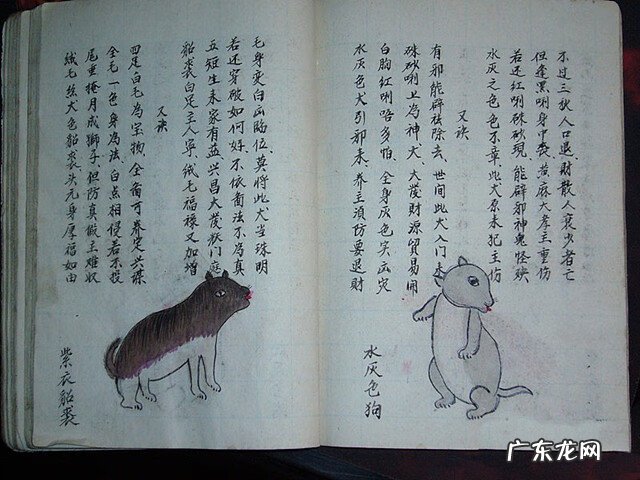 不过三秋人口退、財散人衰少者亡
但逢黑唎身中喪、黄麻大孝主重伤
若还红唎硃砂現、能辟邪神鬼怪殃
水灰之色色不章、此犬原来犯主伤
又诀
有邪能辟祛除去、世间此犬入门来
硃砂唎上為神犬、大發財源貿易開
白胸红唎咯多怕、全身灰色实灾
水灰色犬引邪来、养主須防要退財
水灰色狗
毛身变白出临位、莫将此犬当珠明
若还穿破如何好、不依書法不為真
五短生来家有益、兴昌大發狀门庭
貂裘白足主人寧、绒毛福禄又加增
又诀
四足白毛為宝物、全备可养定兴谋
全毛一色身為法、白点相侵若不投
尾垂掩月成獅子、但防真假主难收
绒毛丝犬色貂裘、头元身厚福如由
紫衣貂裘
广东龙网